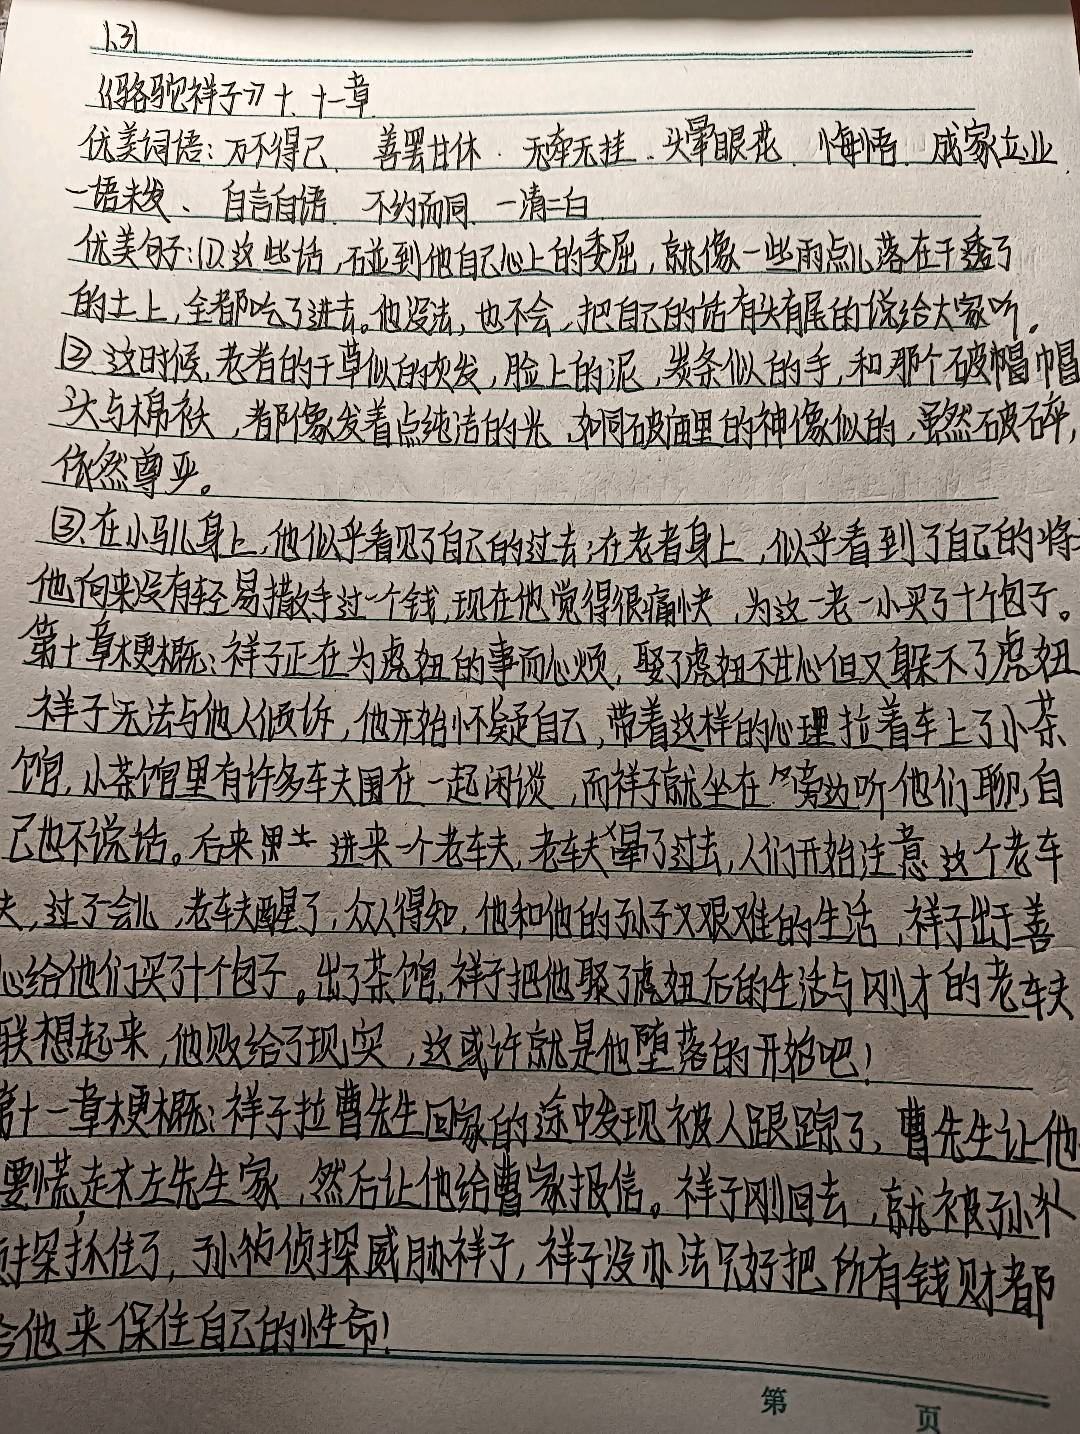 1.31
《骆驼祥子》十、十一章
优美词语：万不得已、善罢甘休、无牵无挂、头晕眼花、悔悟、成家立业
一语未发、自言自语、不约而同、一清二白
优美句子：①这些话，碰到他自己心上的委屈，就像一些雨点儿落在干透了
的土上，全都吃了进去。他没法，也不会，把自己的话有头有尾的说给大家听。
②这时候，老者的干草似的灰发，脸上的泥，炭条似的手，和那个破帽帽
头与棉袄，都像发着点纯洁的光，如同破庙里的神像似的，虽然破碎，
依然尊严。
③在小马儿身上，他似乎看见了自己的过去；在老者身上，似乎看到了自己的将
他向来没有轻易撒手过一个钱，现在他觉得很痛快，为这一老一小买了十个包子。
第十章梗概：祥子正在为虎妞的事而心烦，娶了虎妞不甘心但又躲不了虎妞
祥子无法与他人倾诉，他开始怀疑自己，带着这样的心理拉着车上了小茶
馆，小茶馆里有许多车夫围在一起闲谈，而祥子就坐在旁边听他们聊，自
己也不说话。后来进来一个老车夫，老车夫晕了过去，人们开始注意这个老车
夫，过了会儿，老车夫醒了，众人得知，他和他的孙子又艰难的生活，祥子出于善
心给他们买了十个包子。出了茶馆，祥子把他娶了虎妞后的生活与刚才的老车夫
联想起来，他败给了现实，这或许就是他堕落的开始吧！
第十一章梗概：祥子拉曹先生回家的途中发现被人跟踪了，曹先生让他
要慌，走去左先生家，然后让他给曹家报信。祥子刚回去，就被孙
侦探抓住了，孙侦探威胁祥子，祥子没办法只好把所有钱财都
给他来保住自己的性命！
第 页